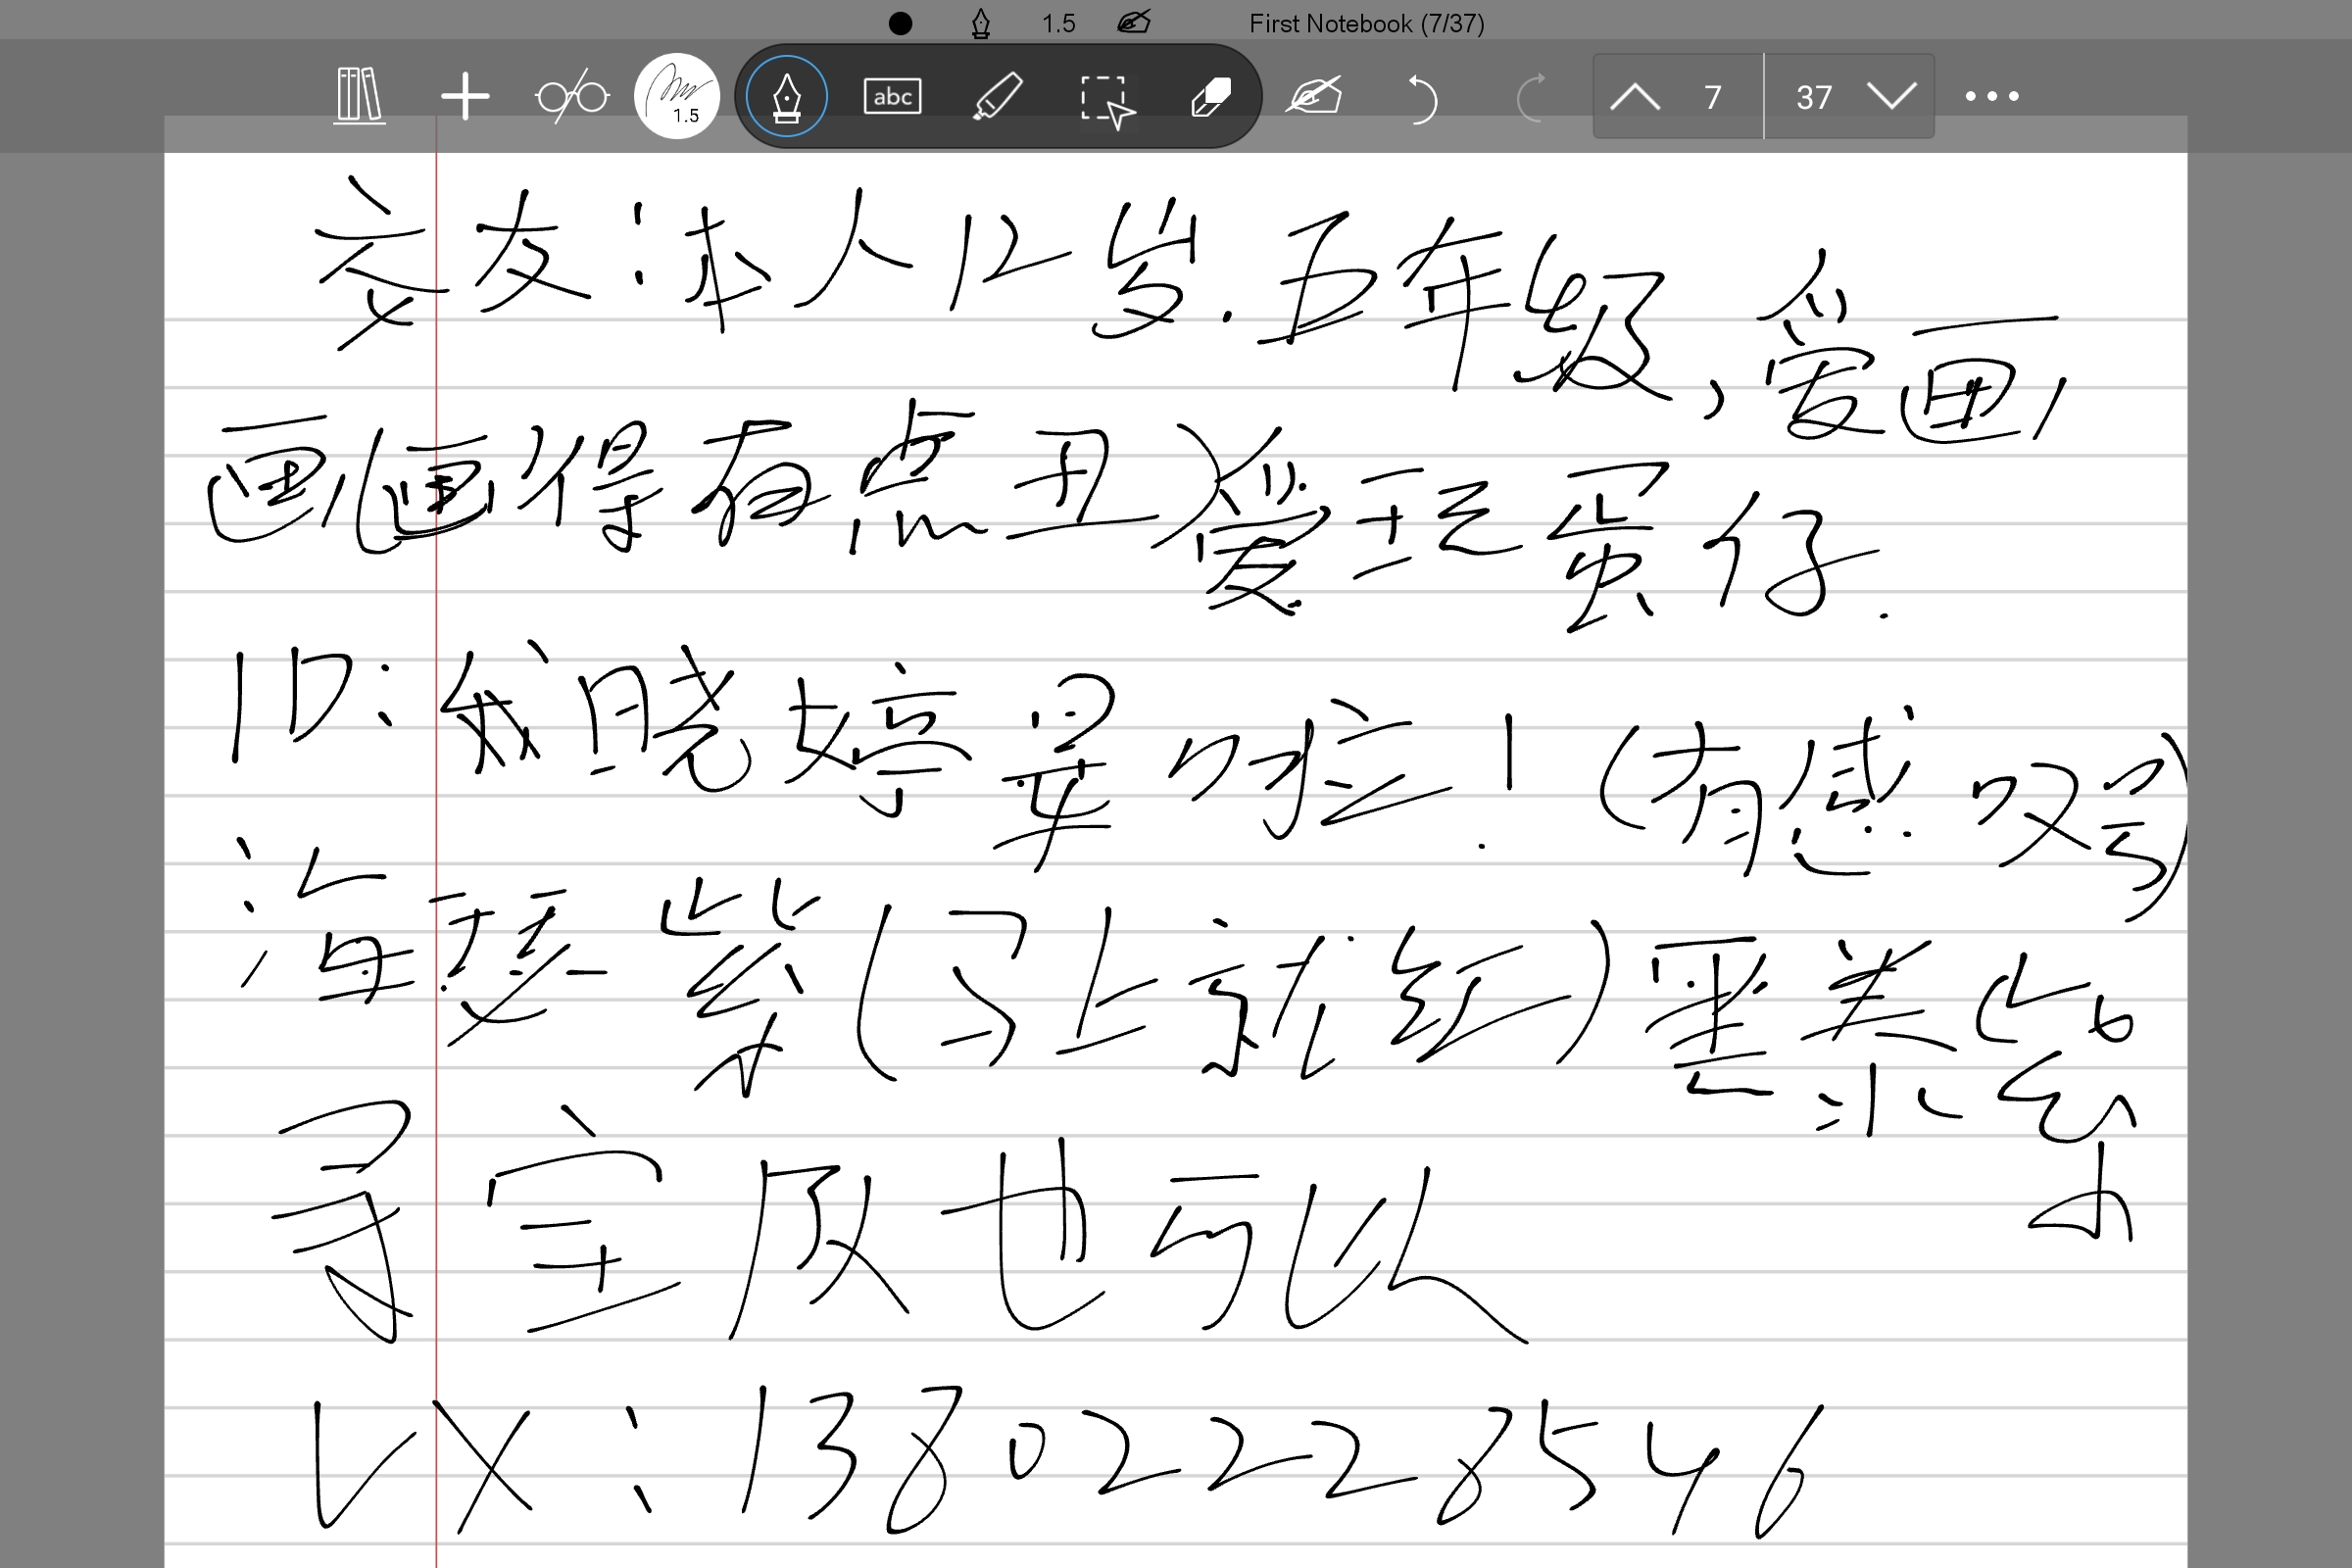 1.5 First Notebook (7/37)
1.5 abc 7 37
交友:本人12岁.五年级,爱画
画(画得有点丑)爱玩蛋仔.
ID:我晓婷是对症!(有感叹号)
海慧紫(马上就红)
寻宝版也可以
VX:13802228546